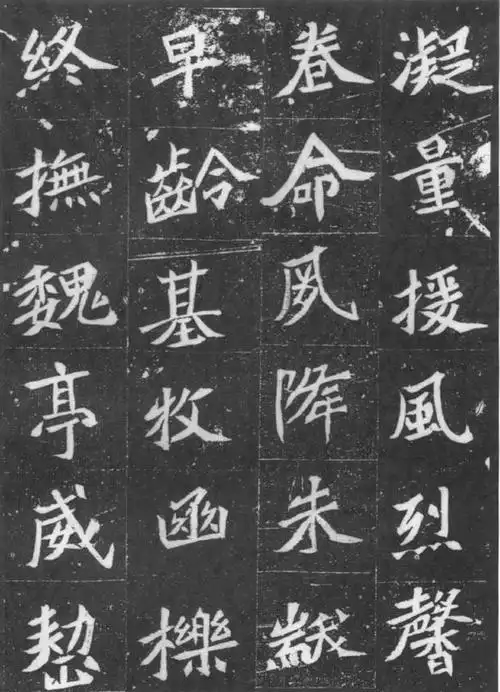 凝量援風烈馨
眷命夙降朱黻
早齡基牧函櫟
終撫魏亭威整